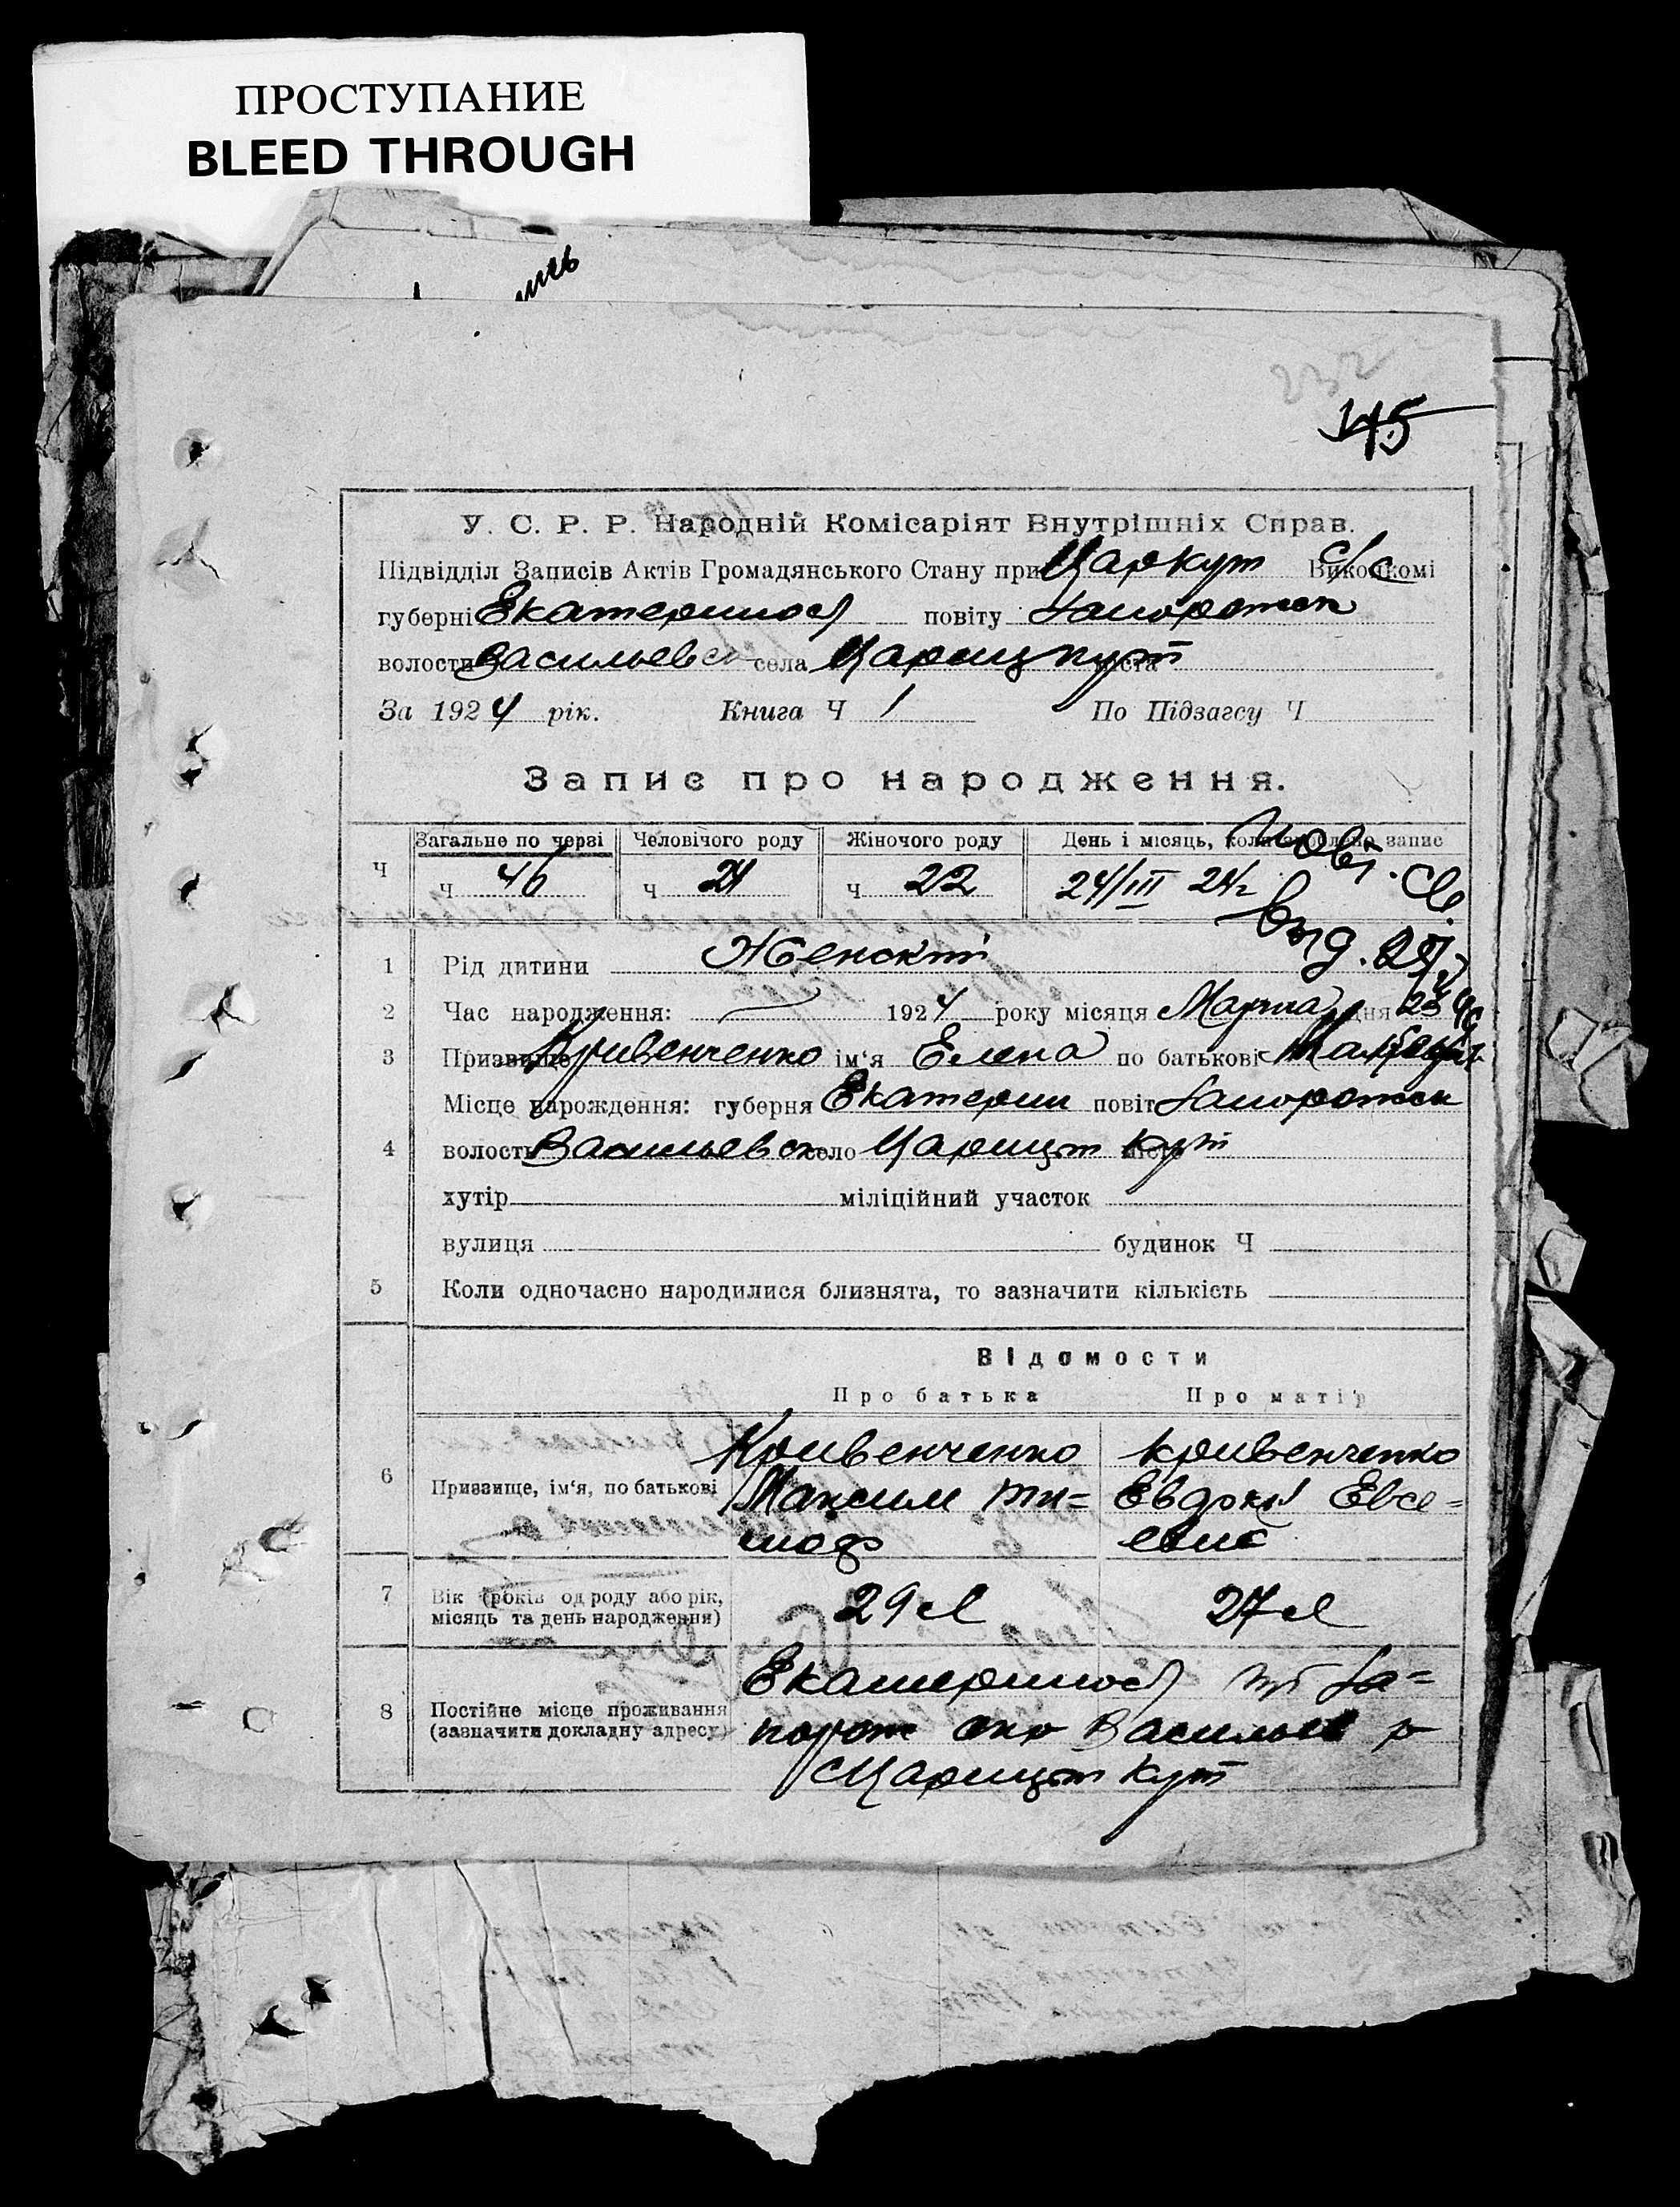 ПРОСТУПАНИЕ
BLEED THROUGH
232
145
У. С. Р. Р. Народній Комісаріят Внутрішніх Справ.
Підвідділ Записів Актів Громадянського Стану при Царкут С/С Виконкомі
губерні Екатеринос повіту Запорожск
волости Васильевск села Царицкут міста
За 1924 рік. Книга Ч 1 По Підзагсу Ч
Запис про народження.
Загальне по черзі Человічого роду Жіночого роду День і місяць, коли зроблено запис
Ч ч 46 ч 24 ч 22 24/III 24г
выд.
1 Рід дитини Женский
2 Час народження: 1924 року місяця Марта дня 23
3 Призвище Кривенченко ім'я Елена по батькові
Місце нарождення: губерня Екатерин повіт Запорожск
4 волость Васильевск село Царицын Кут місто
хутір міліційний участок
вулиця будинок Ч
5 Коли одночасно народилися близнята, то зазначити кількість
Відомости
Про батька Про матір
Кривенченко Кривенченко
6 Призвище, ім'я, по батькові Максим Ти= Евдоки Евсе=
моф евна
7 Вік (років од роду або рік, місяць та день народження) 29 л 27 л
Екатеринос губ За=
8 Постійне місце проживання (зазначити докладну адресу) порож окр Васильев р
Царицын Кут